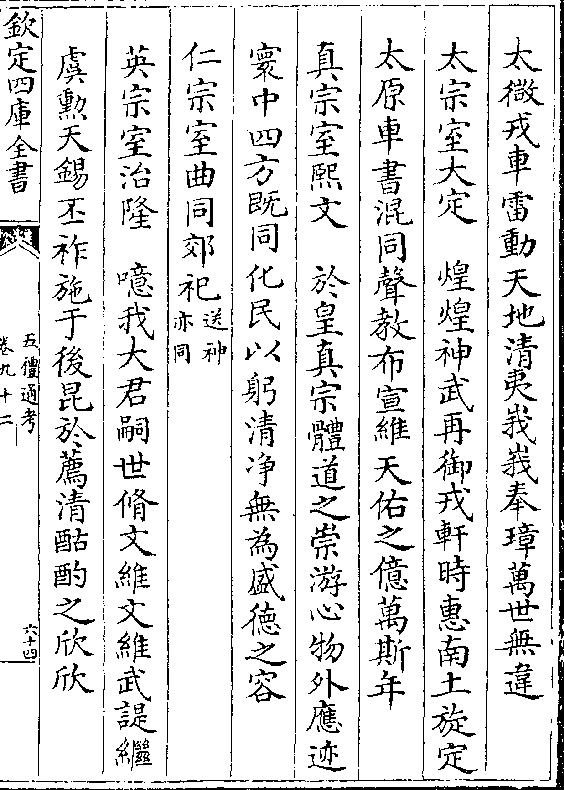 太微戎車雷動天地清夷峩峩奉璋萬世無違
太宗室大定　煌煌神武再御戎軒時惠南土旋定
太原車書混同聲教布宣維天佑之億萬斯年
真宗室熙文　於皇真宗體道之崇游心物外應迹
寰中四方既同化民以躬清净無為盛德之容
仁宗室曲同郊祀送神亦同
英宗室治隆　噫我大君嗣世脩文維文維武諟繼
虞勲天錫丕祚施于後昆於薦清酤酌之欣欣
欽定四庫全書
五禮通考
卷九十二
六十四